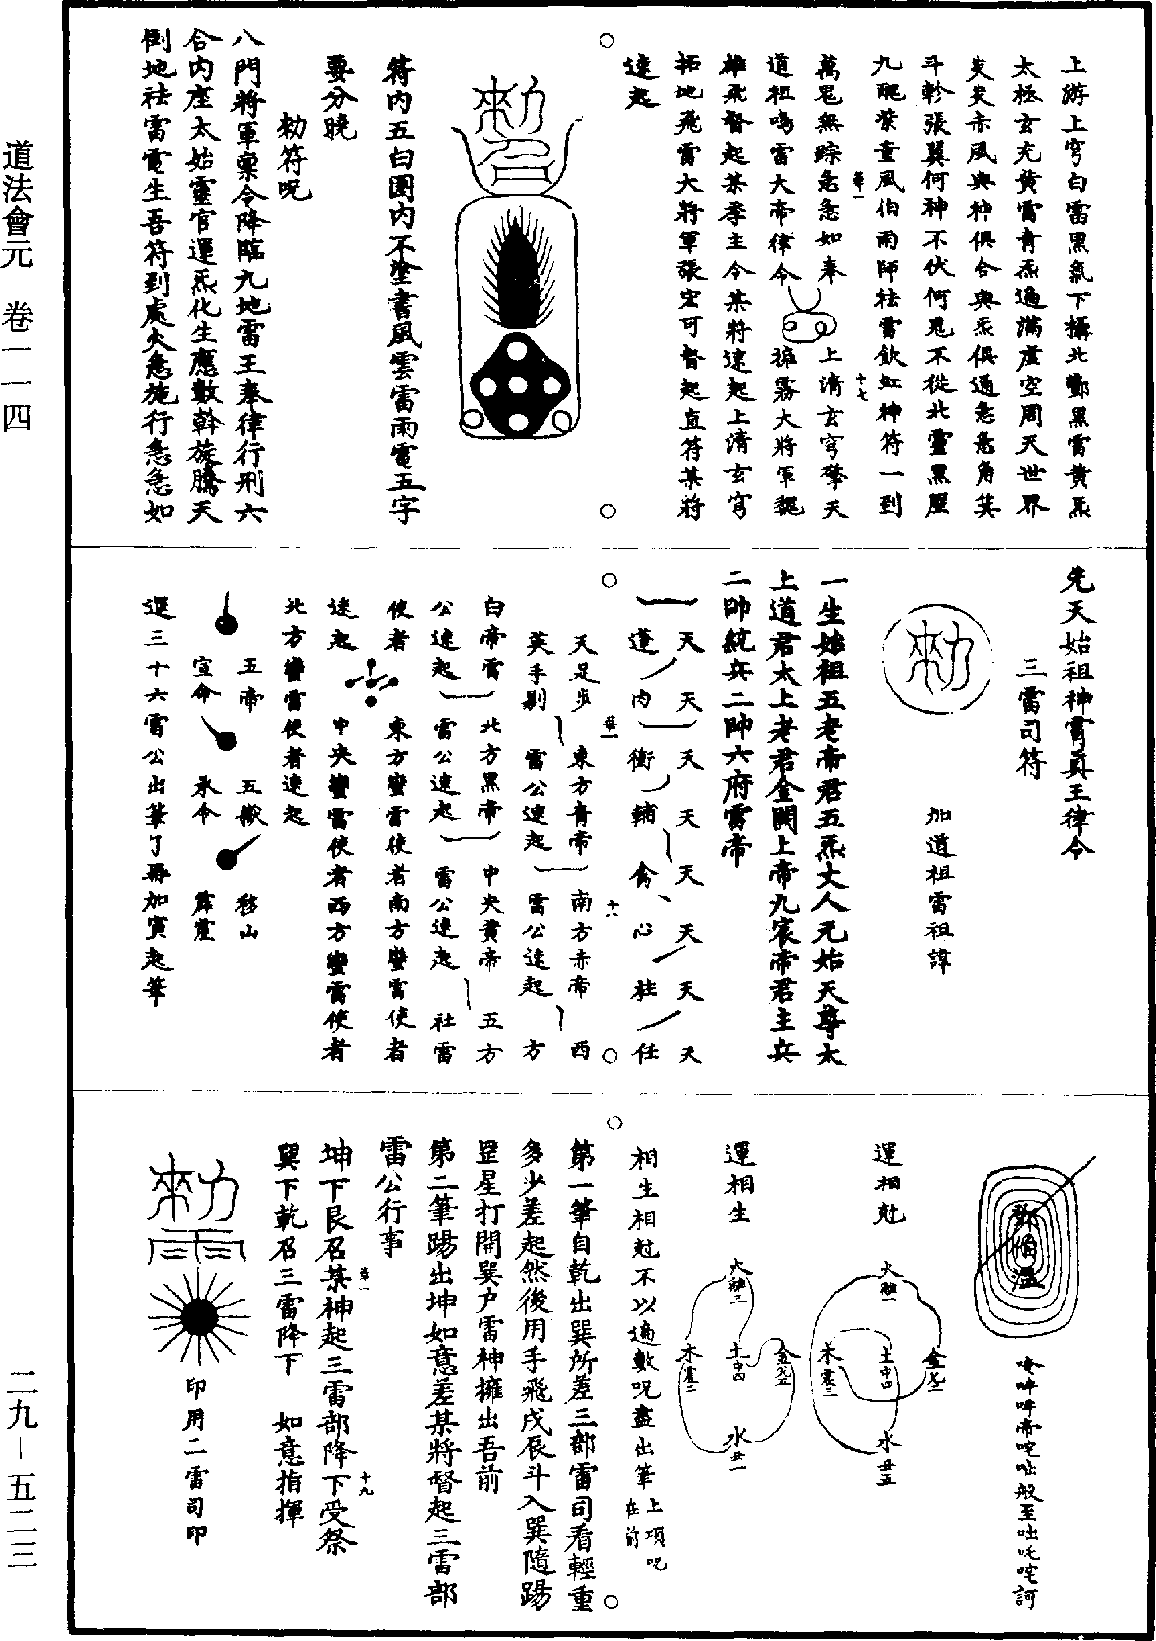 道法會元　卷一一四
二九－五二三
上游上穹白雷黑氣下攝北酆黑雷黃炁
太極玄充黃雷青炁遍滿虛空周天世界
炎炎赤風與神俱合與炁俱通急急角箕
斗軫張翼何神不伏何鬼不從北靈黑壓
九醜柴童風伯雨師祛雷飲虹神符一到
萬鬼無蹤急急如奉　上清玄穹擎天
道祖鳴雷大帝律令　掠霧大將軍魏
雄飛督起某季主令某將速起上清玄穹
拓地飛雷大將軍張宏可督起直符某將
速起
第一
十七
勑
符內五白圈內不塗書風雲雷雨電五字
要分曉
勑符呪
八門將軍稟令降臨九地雷王奉律行刑六
合內座太始靈官運炁化生應數斡旋騰天
倒地祛雷電生吾符到處火急施行急急如
先天始祖神霄真王律令
三雷司符
勑
加道祖雷祖諱
一生始祖五老帝君五炁丈人元始天尊太
上道君太上老君金闕上帝九宸帝君主兵
二帥統兵二帥六府雷帝
天　天　天　天　天　天　天　天
蓬　內　衝　輔　禽　心　柱　任
天足步　東方青帝　南方赤帝　西
英手剔　雷公速起　雷公速起　方
第一
十八
白帝雷　北方黑帝　中央黃帝　五方
公速起　雷公速起　雷公速起　社雷
使者　東方蠻雷使者南方蠻雷使者
速起　中央蠻雷使者西方蠻雷使者
北方蠻雷使者速起
五帝　五嶽　移山
宣命　承令　霹靂
還三十六雷公出筆了再加寅起筆
鄧伯溫
唵吽吽帝咤咄般至咄吒咤訶
運相尅
火離一
金兌二
土中四
木震三
水丑五
運相生
火離三
金兌五
土中四
木震二
水丑一
相生相尅不以遍數呪盡出筆上項呪在前
第一筆自乾出巽所差三部雷司看輕重
多少差起然後用手飛戌辰斗入巽隨踢
罡星打開巽戶雷神擁出吾前
第二筆踢出坤如意差某將督起三雷部
雷公行事
坤下艮召某神起三雷部降下受祭
巽下乾召三雷降下　如意指揮
第一
十九
勑
印用二雷司印